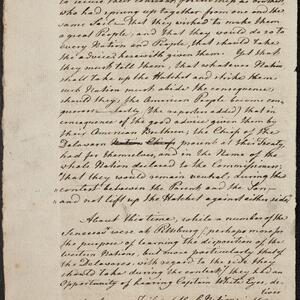 who had sprung up like them, from one and the
same Soil. That they wished to make them
a great People; and that they would do so to
every Nation and People, that should take
the advice herewith given them. But that
they must tell them, that whatever Nation
shall take up the Hatchet and strike them
such Nation must abide the consequence,
should they, the American People become con-
querors. Lastly, They reported also, that in
consequence of the good advice given them by
their American Brethren; the Chiefs of the
Delaware Nation Chiefs present at this Treaty,
had for themselves, and in the Name of the
whole Nation declared to the Commissioners;
That they would remain neutral during the
contest between the Parent and the Son—
and not lift up the Hatchet against either side.
About this time, while a number of the
Senecas were at Pittsburg, (perhaps more for
the purpose of learning the disposition of the
Western Nations, but more particularly that of
the Delawares with regard to the side they
should take during the contest) they had an
Opportunity of hearing Captain White Eyes, de-